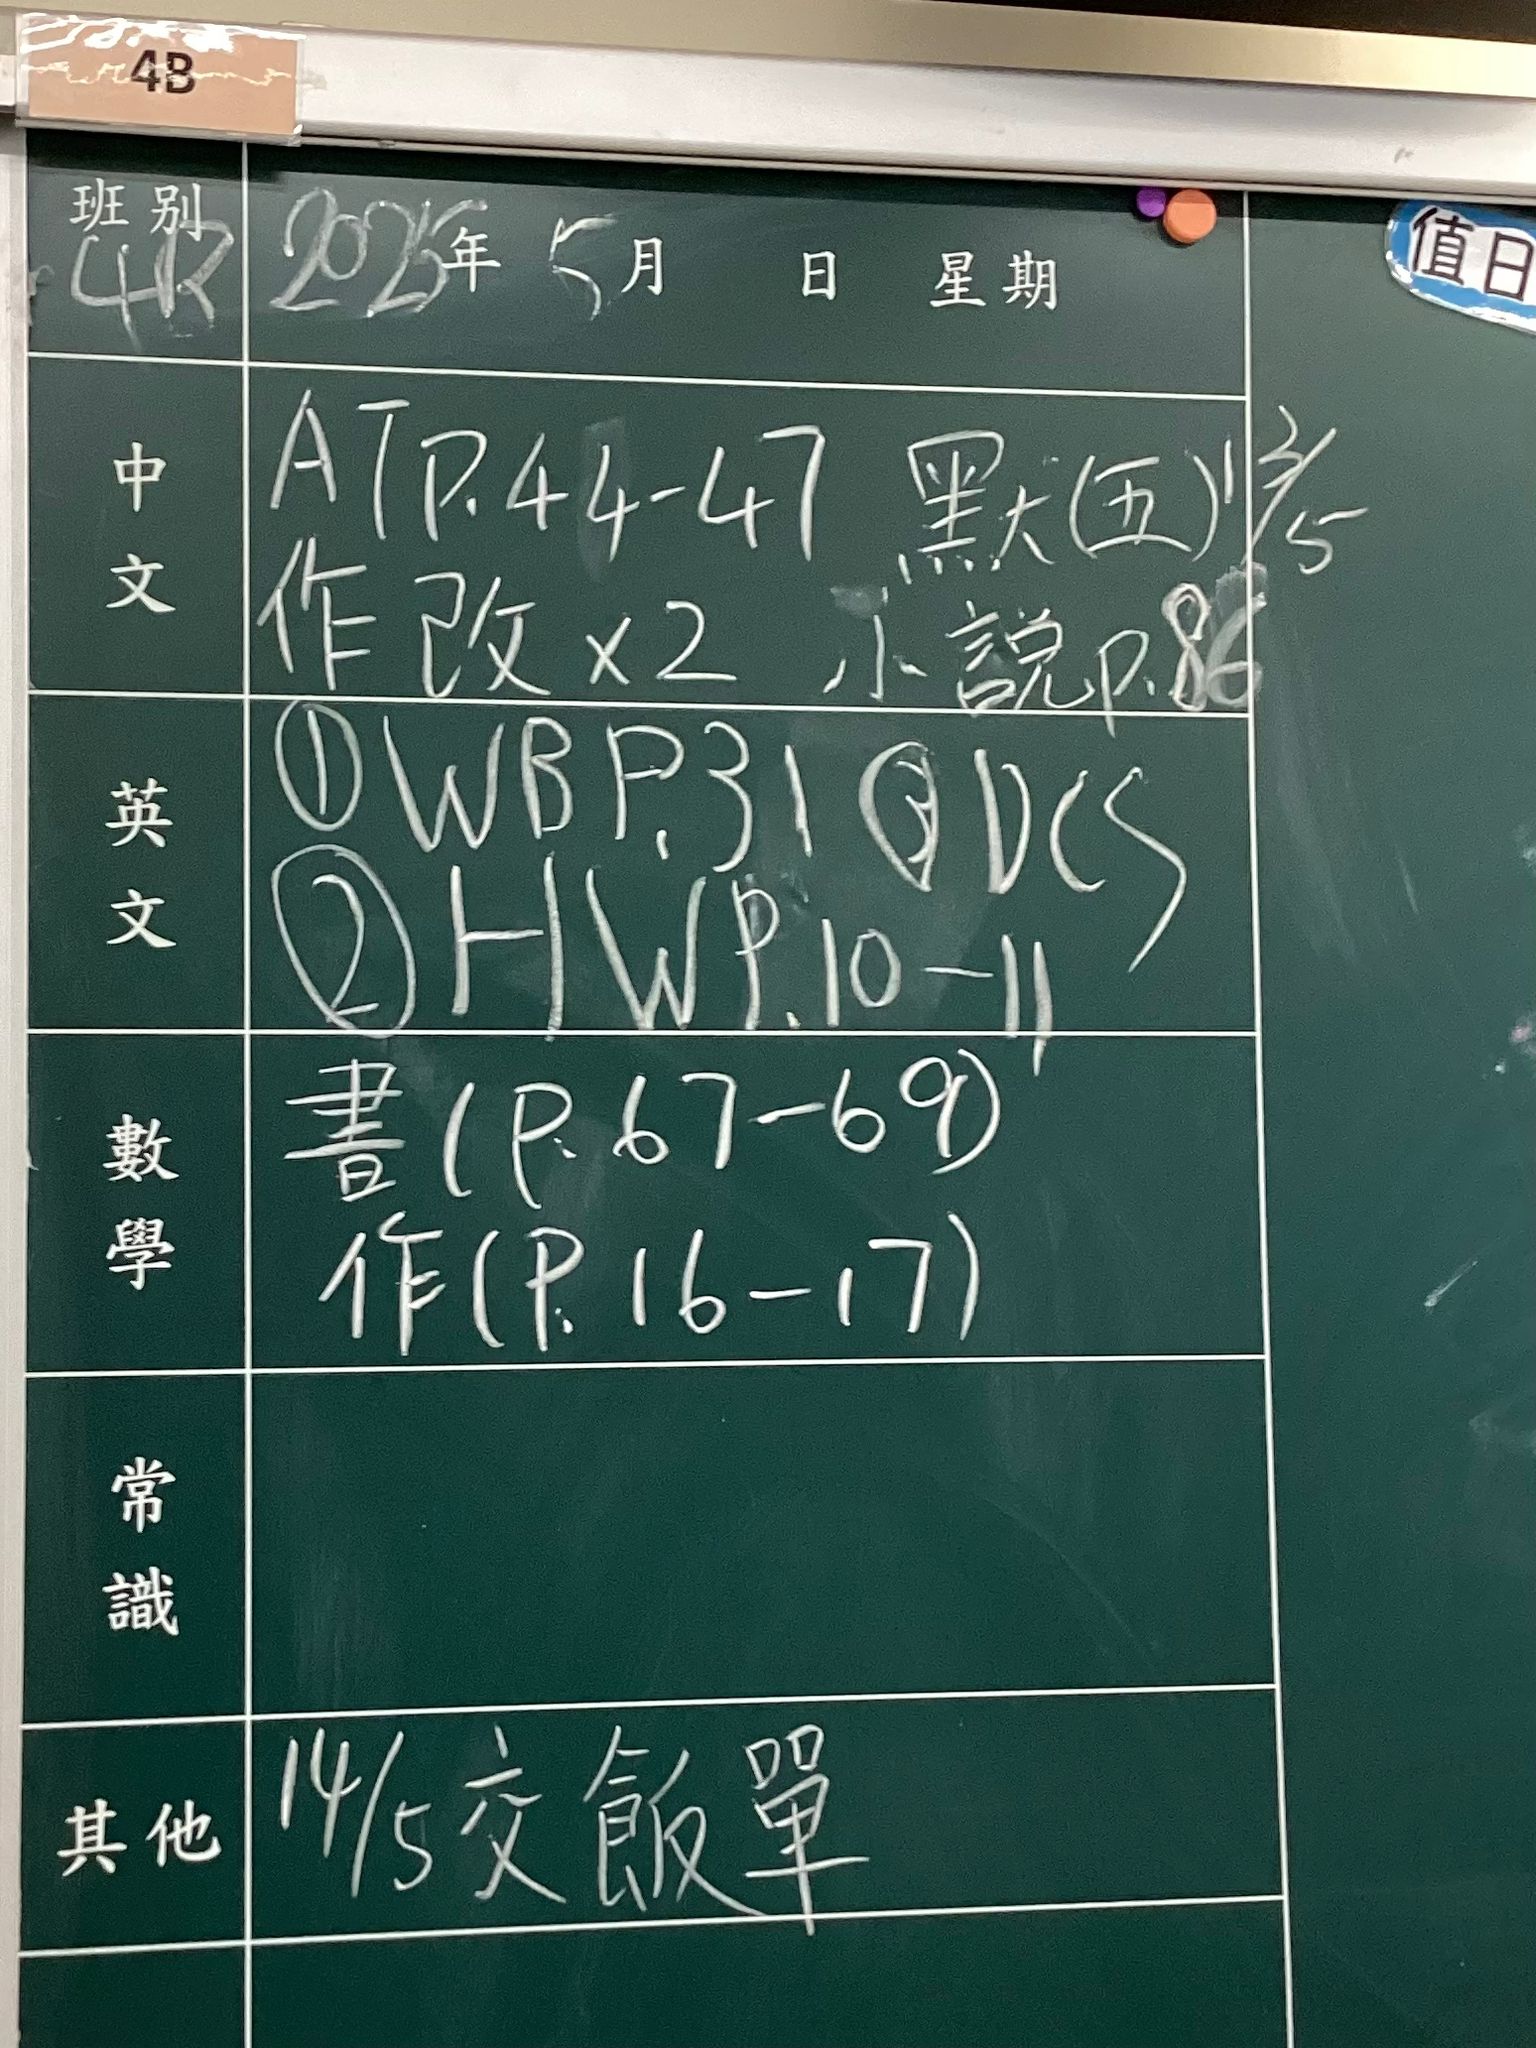 4B
班別 4B 2025年 5月 日 星期
值日
中文
ATP.44-47 默(五)13/5
作改x2 小說p.86
英文
①WBP.31 ③DCS
②HWP.10-11
數學
書(P.67-69)
作(P.16-17)
常識
其他
14/5交飯單